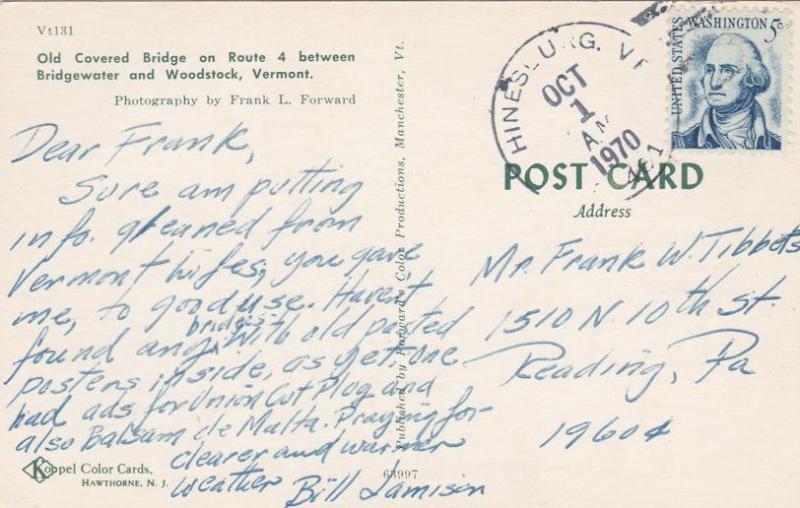 Vt131
Old Covered Bridge on Route 4 between
Bridgewater and Woodstock, Vermont.
Photography by Frank L. Forward
Dear Frank,
Sure am putting
info. gleaned from
Vermont Lifes, you gave
me, to good use. Haven't
found any bridges with old pasted
posters inside, as yet. One
had ads for Union Cut Plug and
also Balsam de Malta. Praying for
clearer and warmer
weather Bill Jamison
Koppel Color Cards,
HAWTHORNE, N. J.
63997
Published by Forward's Color Productions, Manchester, Vt.
HINESBURG, VT
OCT
1
AM
1970
UNITED STATES
WASHINGTON 5c
POST CARD
Address
Mr. Frank W. Tibbets
1510 N. 10th St.
Reading, Pa
19604